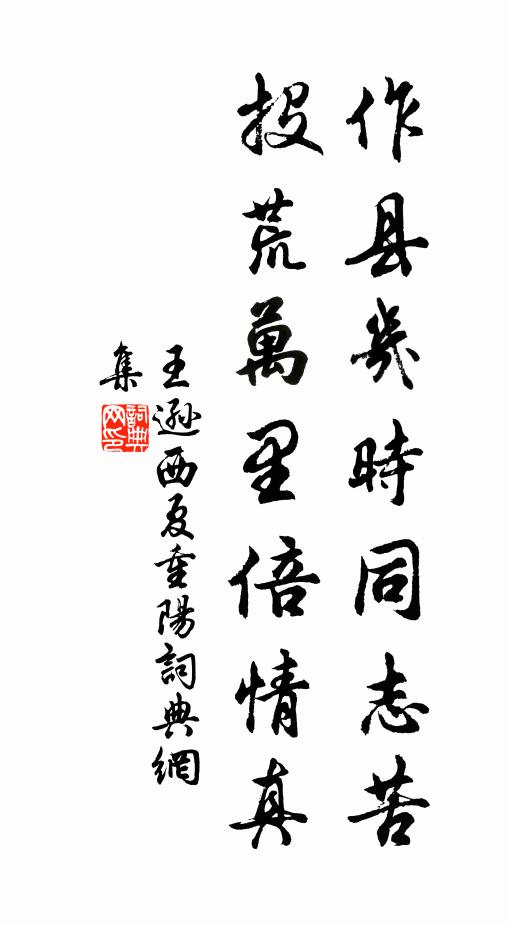 作县幾時同志苦
投荒萬里倍情真
王遜西夏重陽詞典網
集
詞典网印